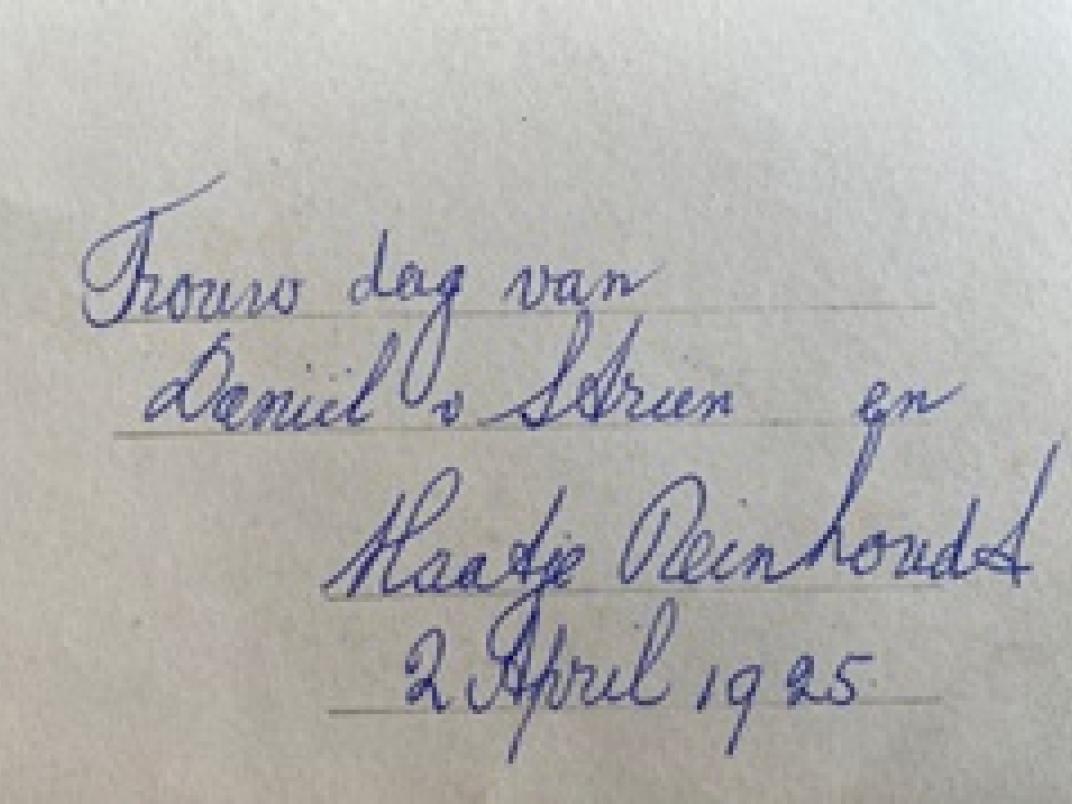 Trouw dag van
Daniël v Strien en
Maatje Reinhoudt
2 April 1925